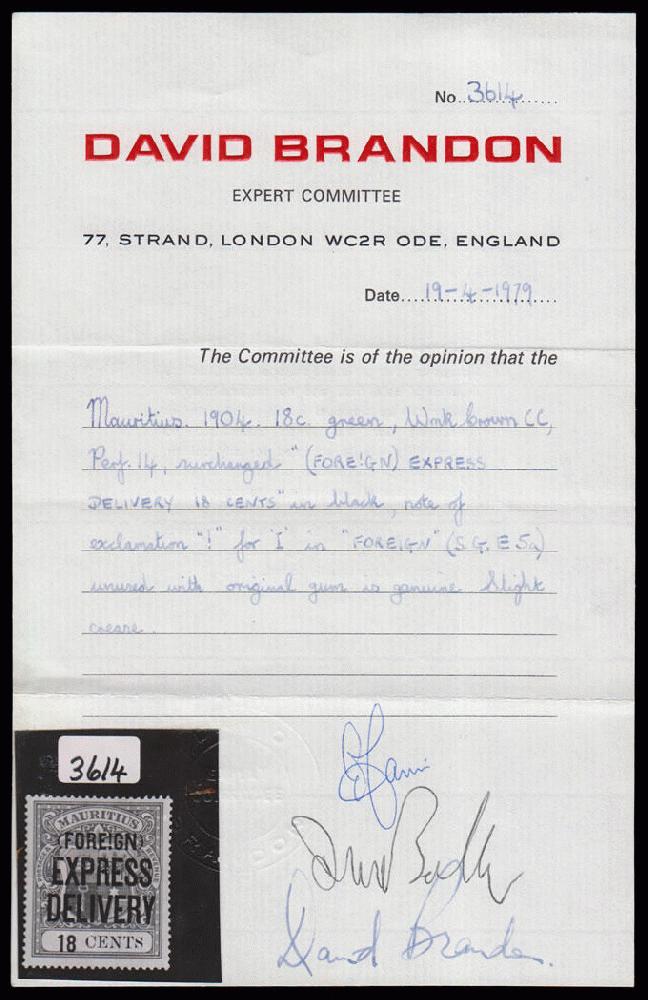 No. 3614
DAVID BRANDON
EXPERT COMMITTEE
77, STRAND, LONDON WC2R ODE, ENGLAND
Date 19-4-1979
The Committee is of the opinion that the
Mauritius. 1904. 18c. green, Wmk Crown CC,
Perf. 14, surcharged "(FORE!GN) EXPRESS
DELIVERY 18 CENTS" in black, note of
exclamation "!" for "I" in "FOREIGN" (S.G. E5a)
unused with original gum is genuine. Slight
crease.
3614
MAURITIUS
(FORE!GN)
EXPRESS
DELIVERY
18 CENTS
David Brandon.